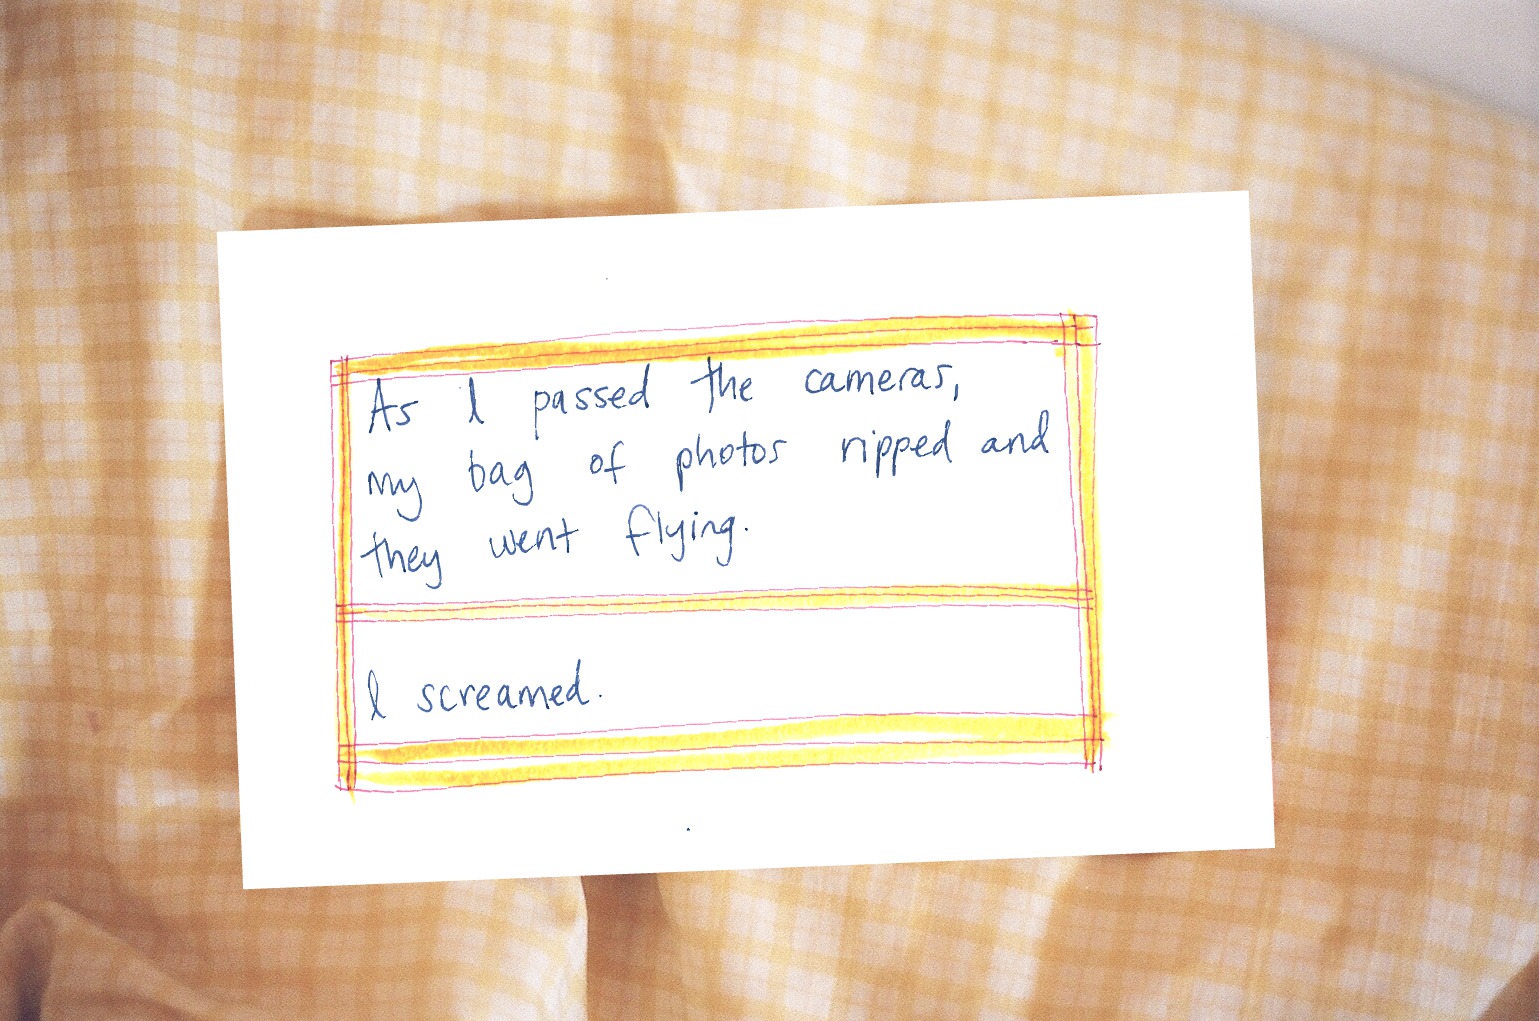 As I passed the cameras,
my bag of photos ripped and
they went flying.
I screamed.